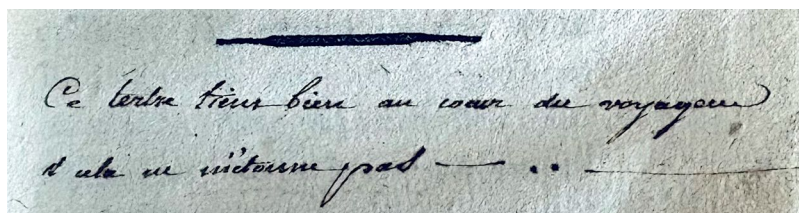 Ce tertre tiens bien au coeur du voyageur
& cela ne m'étonne pas — ..